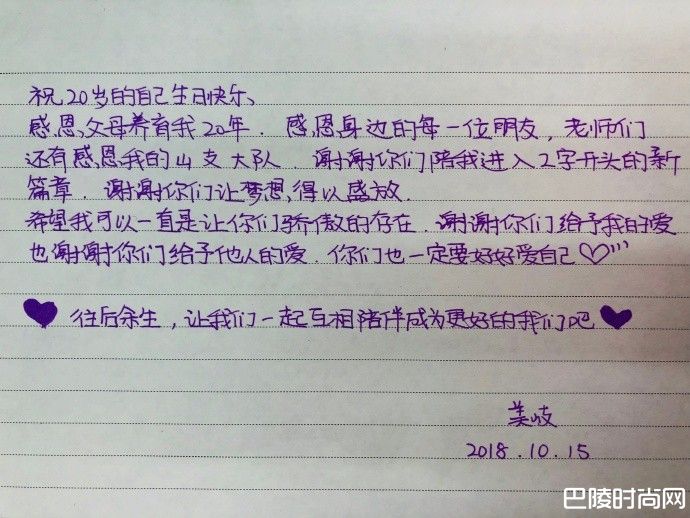 祝20岁的自己生日快乐、
感恩父母养育我20年. 感恩身边的每一位朋友, 老师们
还有感恩我的山支大队. 谢谢你们陪我进入2字开头的新
篇章. 谢谢你们让梦想得以盛放.
希望我可以一直是让你们骄傲的存在. 谢谢你们给予我的爱
也谢谢你们给予他人的爱. 你们也一定要好好爱自己♡'''
♥ 往后余生, 让我们一起互相陪伴成为更好的我们吧 ♥
美岐
2018.10.15
巴陵时尚网